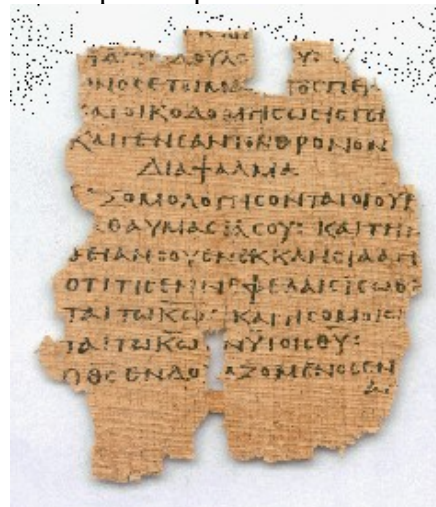 ΔΟΥΛΩ Υ:
ΝΟΣΕΤΟΙΜΑ ΤΟΣΠΕΡ
ΚΑΙΟΙΚΟΔΟΜΗΣΩΕΙΣΓΕΝ
ΚΑΙΓΕΝΕΑΝΤΟΝΘΡΟΝΟΝ
ΔΙΑΨΑΛΜΑ
ΕΞΟΜΟΛΟΓΗΣΟΝΤΑΙΟΙΟΥΡ
ΘΑΥΜΑΣΙΑΣΟΥ: ΚΑΙΤΗΝ
ΘΕΙΑΝΣΟΥΕΝΕΚΚΛΗΣΙΑΑΓΙ
ΟΤΙΤΙΣΕΝΝΕΦΕΛΑΙΣΙΣΩΘΗ
ΤΑΙΤΩΚΩ: ΚΑΙΤΙΣΟΜΟΙΩ
ΤΑΙΤΩΚΩ ΝΥΙΟΙΣΘΥ:
ΟΘΣΕΝΔΟ ΑΖΟΜΕΝΟΣΕΝ